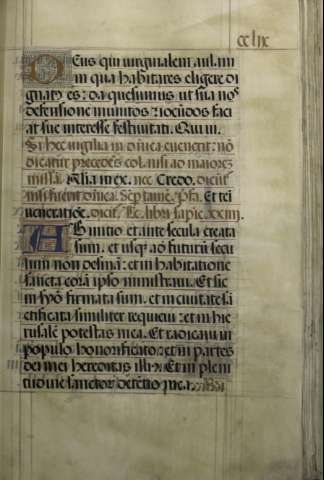 cclix
DEus qui virginalem aulam
in qua habitares eligere di
gnatus es: da quesumus ut sua nos
defensione munitos: iocūdos faci
at sue interesse festivitati. Qui vi.
Si hec vigilia in dn̄ica evenerit: nō
dicatur precedēs col. nisi ad maiorez
missā. Alia in ex. nec Credo. dicit̄
nisi fuerit dn̄ica. Septime. Pfa. Et te i
veneratiōe. dicit̄. Lc. libri sapie. xxiiij.
AB initio et ante secula creata
sum. et usqꝫ ad futurū secu
lum non desinā: et in habitatione
sancta corā ipso ministravi. Et sic
in syō firmata sum. et in civitate sā
ctificata similiter requievi: et in hie
rusalē potestas mea. Et radicavi in
populo honorificato: et in partes
dei mei hereditas illiꝰ. Et in pleni
tudine sanctoꝝ detētio mea.